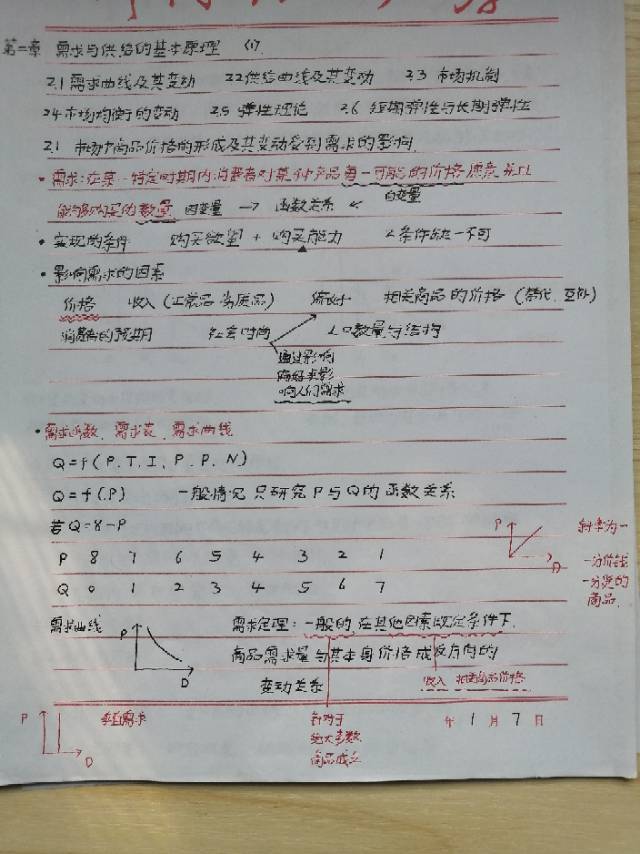 第二章 需求与供给的基本原理 (1)
2.1 需求曲线及其变动 2.2 供给曲线及其变动 2.3 市场机制
2.4 市场均衡的变动 2.5 弹性理论 2.6 短期弹性与长期弹性
2.1 市场中商品价格的形成及其变动受到需求的影响.
• 需求:在某一特定时期内消费者对某种产品每一可能的价格愿意并且
能够购买的数量 因变量 → 函数关系 < 自变量
• 实现的条件 购买欲望 + 购买能力 2条件缺一不可
• 影响需求的因素
价格 收入(正常品 劣质品) 偏好 相关商品的价格(替代、互补)
消费者的预期 社会时尚 人口数量与结构
通过影响
偏好来影
响人们需求
• 需求函数、需求表、需求曲线
Q=f(P.T.I.P.P.N)
Q=f(.P) 一般情况 只研究P与Q的函数关系
若Q=8-P
P 8 7 6 5 4 3 2 1
Q 0 1 2 3 4 5 6 7
P
D
斜率为一
一分价钱
一分货的
商品.
需求曲线
P
D
需求定理:一般的,在其他因素既定条件下.
商品需求量与其本身价格成反方向的
变动关系
收入 相关商品价格
P
D
垂直需求
针对于
绝大多数
商品成立
年 1 月 7 日